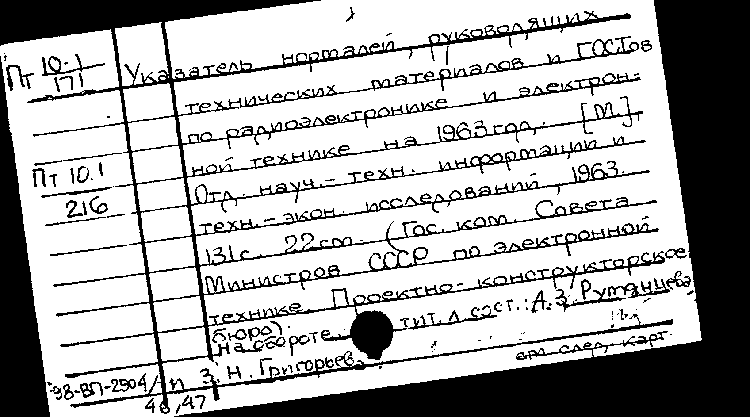 Пт 10.1
171
Указатель нормалей, руководящих
технических материалов и ГОСТов
по радиоэлектронике и электрон-
ной технике на 1963 год. [М.],
Пт 10.1
216
Отд. науч.-техн. информации и
техн.-экон. исследований, 1963.
131с. 22см. (Гос. ком. Совета
Министров СССР по электронной
технике. Проектно-конструкторское
бюро).
На обороте тит. л. сост.: А.З. Румянцева
и З.Н. Григорьева.
см. след. карт.
98-ВП-2904/
46,47